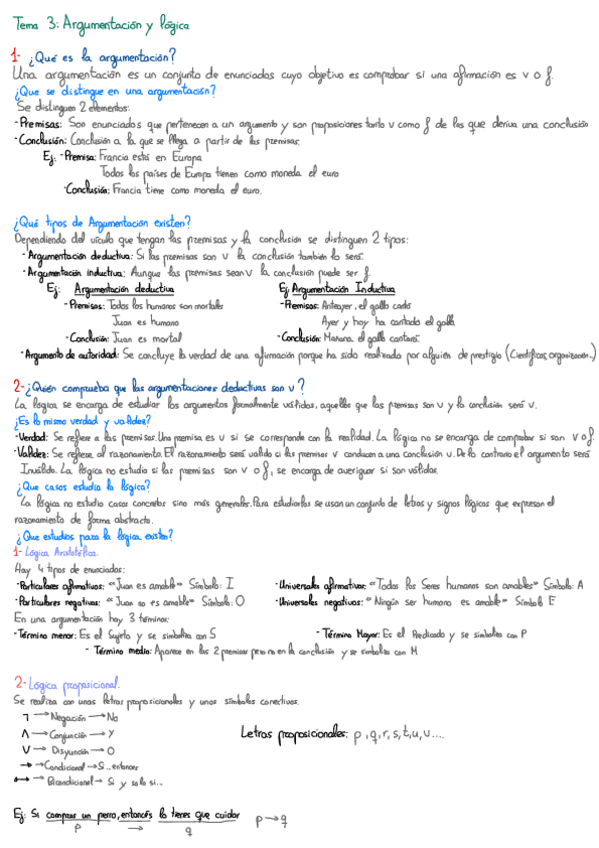 Tema 3: Argumentación y lógica
1- ¿Qué es la argumentación?
Una argumentación es un conjunto de enunciados cuyo objetivo es comprobar si una afirmación es v o f.
¿Que se distingue en una argumentación?
Se distinguen 2 elementos:
-Premisas: Son enunciados que pertenecen a un argumento y son proposiciones tanto v como f de las que deriva una conclusión
-Conclusión: Conclusión a la que se llega a partir de las premisas.
Ej: -Premisa: Francia está en Europa
Todos los países de Europa tienen como moneda el euro
-Conclusión: Francia tiene como moneda el euro.
¿Qué tipos de Argumentación existen?
Dependiendo del vículo que tengan las premisas y la conclusión se distinguen 2 tipos:
-Argumentación deductiva: Si las premisas son v la conclusión también lo será.
-Argumentación inductiva: Aunque las premisas sean v la conclusión puede ser f.
Ej: Argumentación deductiva
-Premisas: Todos los humanos son mortales
Juan es humano
-Conclusión: Juan es mortal
Ej: Argumentación Inductiva
-Premisas: Anteayer, el gallo cantó
Ayer y hoy ha cantado el gallo
-Conclusión: Mañana el gallo cantará.
-Argumento de autoridad: Se concluye la verdad de una afirmación porque ha sido realizada por alguien de prestigio (Científicos, organización..)
2-¿Quién comprueba que las argumentaciones deductivas son v?
La lógica se encarga de estudiar los argumentos formalmente válidos, aquellos que las premisas son v y la conclusión será v.
¿Es lo mismo verdad y validez?
-Verdad: Se refiere a las premisas. Una premisa es v si se corresponde con la realidad. La lógica no se encarga de comprobar si son v o f.
-Validez: Se refiere al razonamiento. El razonamiento será valido si las premisas v conducen a una conclusión v. De lo contrario el argumento será
Inválido. La lógica no estudia si las premisas son v o f, se encarga de averiguar si son válidas.
¿Que casos estudia la lógica?
La lógica no estudia casos concretos sino más generales. Para estudiarlos se usan un conjunto de letras y signos lógicos que expresan el
razonamiento de forma abstracta.
¿Que estudios para la lógica existen?
1- Lógica Aristotélica.
Hay 4 tipos de enunciados:
-Particulares afirmativos: "Juan es amable" Símbolo: I
-Universales afirmativos: "Todos los Seres humanos son amables" Símbolo: A
-Particulares negativos: "Juan no es amable" Símbolo: O
-Universales negativos: "Ningún ser humano es amable" Símbolo E
En una argumentación hay 3 términos:
-Término menor: Es el Sujeto y se simboliza con S
-Término Mayor: Es el Predicado y se simboliza con P
-Término medio: Aparece en las 2 premisas pero no en la conclusión y se simboliza con M
2- Lógica proposicional.
Se realiza con unas letras proposicionales y unos símbolos conectivos.
¬ → Negación → No
Λ → Conjunción → Y
V → Disyunción → O
→ → Condicional → S...entonces
↔ → Bicondicional → Si y solo si...
Letras proposicionales: p, q, r, s, t, u, v....
Ej: Si compras un perro, entonces lo tienes que cuidar p→q
p → q